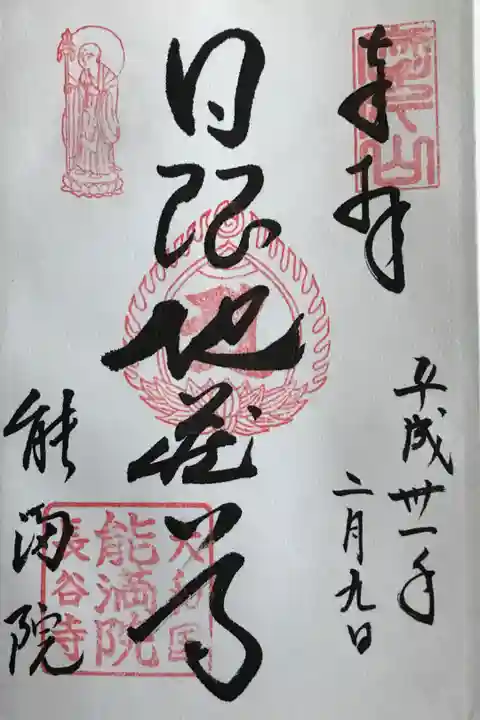 奉拝
平成卅一年
二月九日
日限地蔵尊
能満院
大和国
能満院
長谷寺